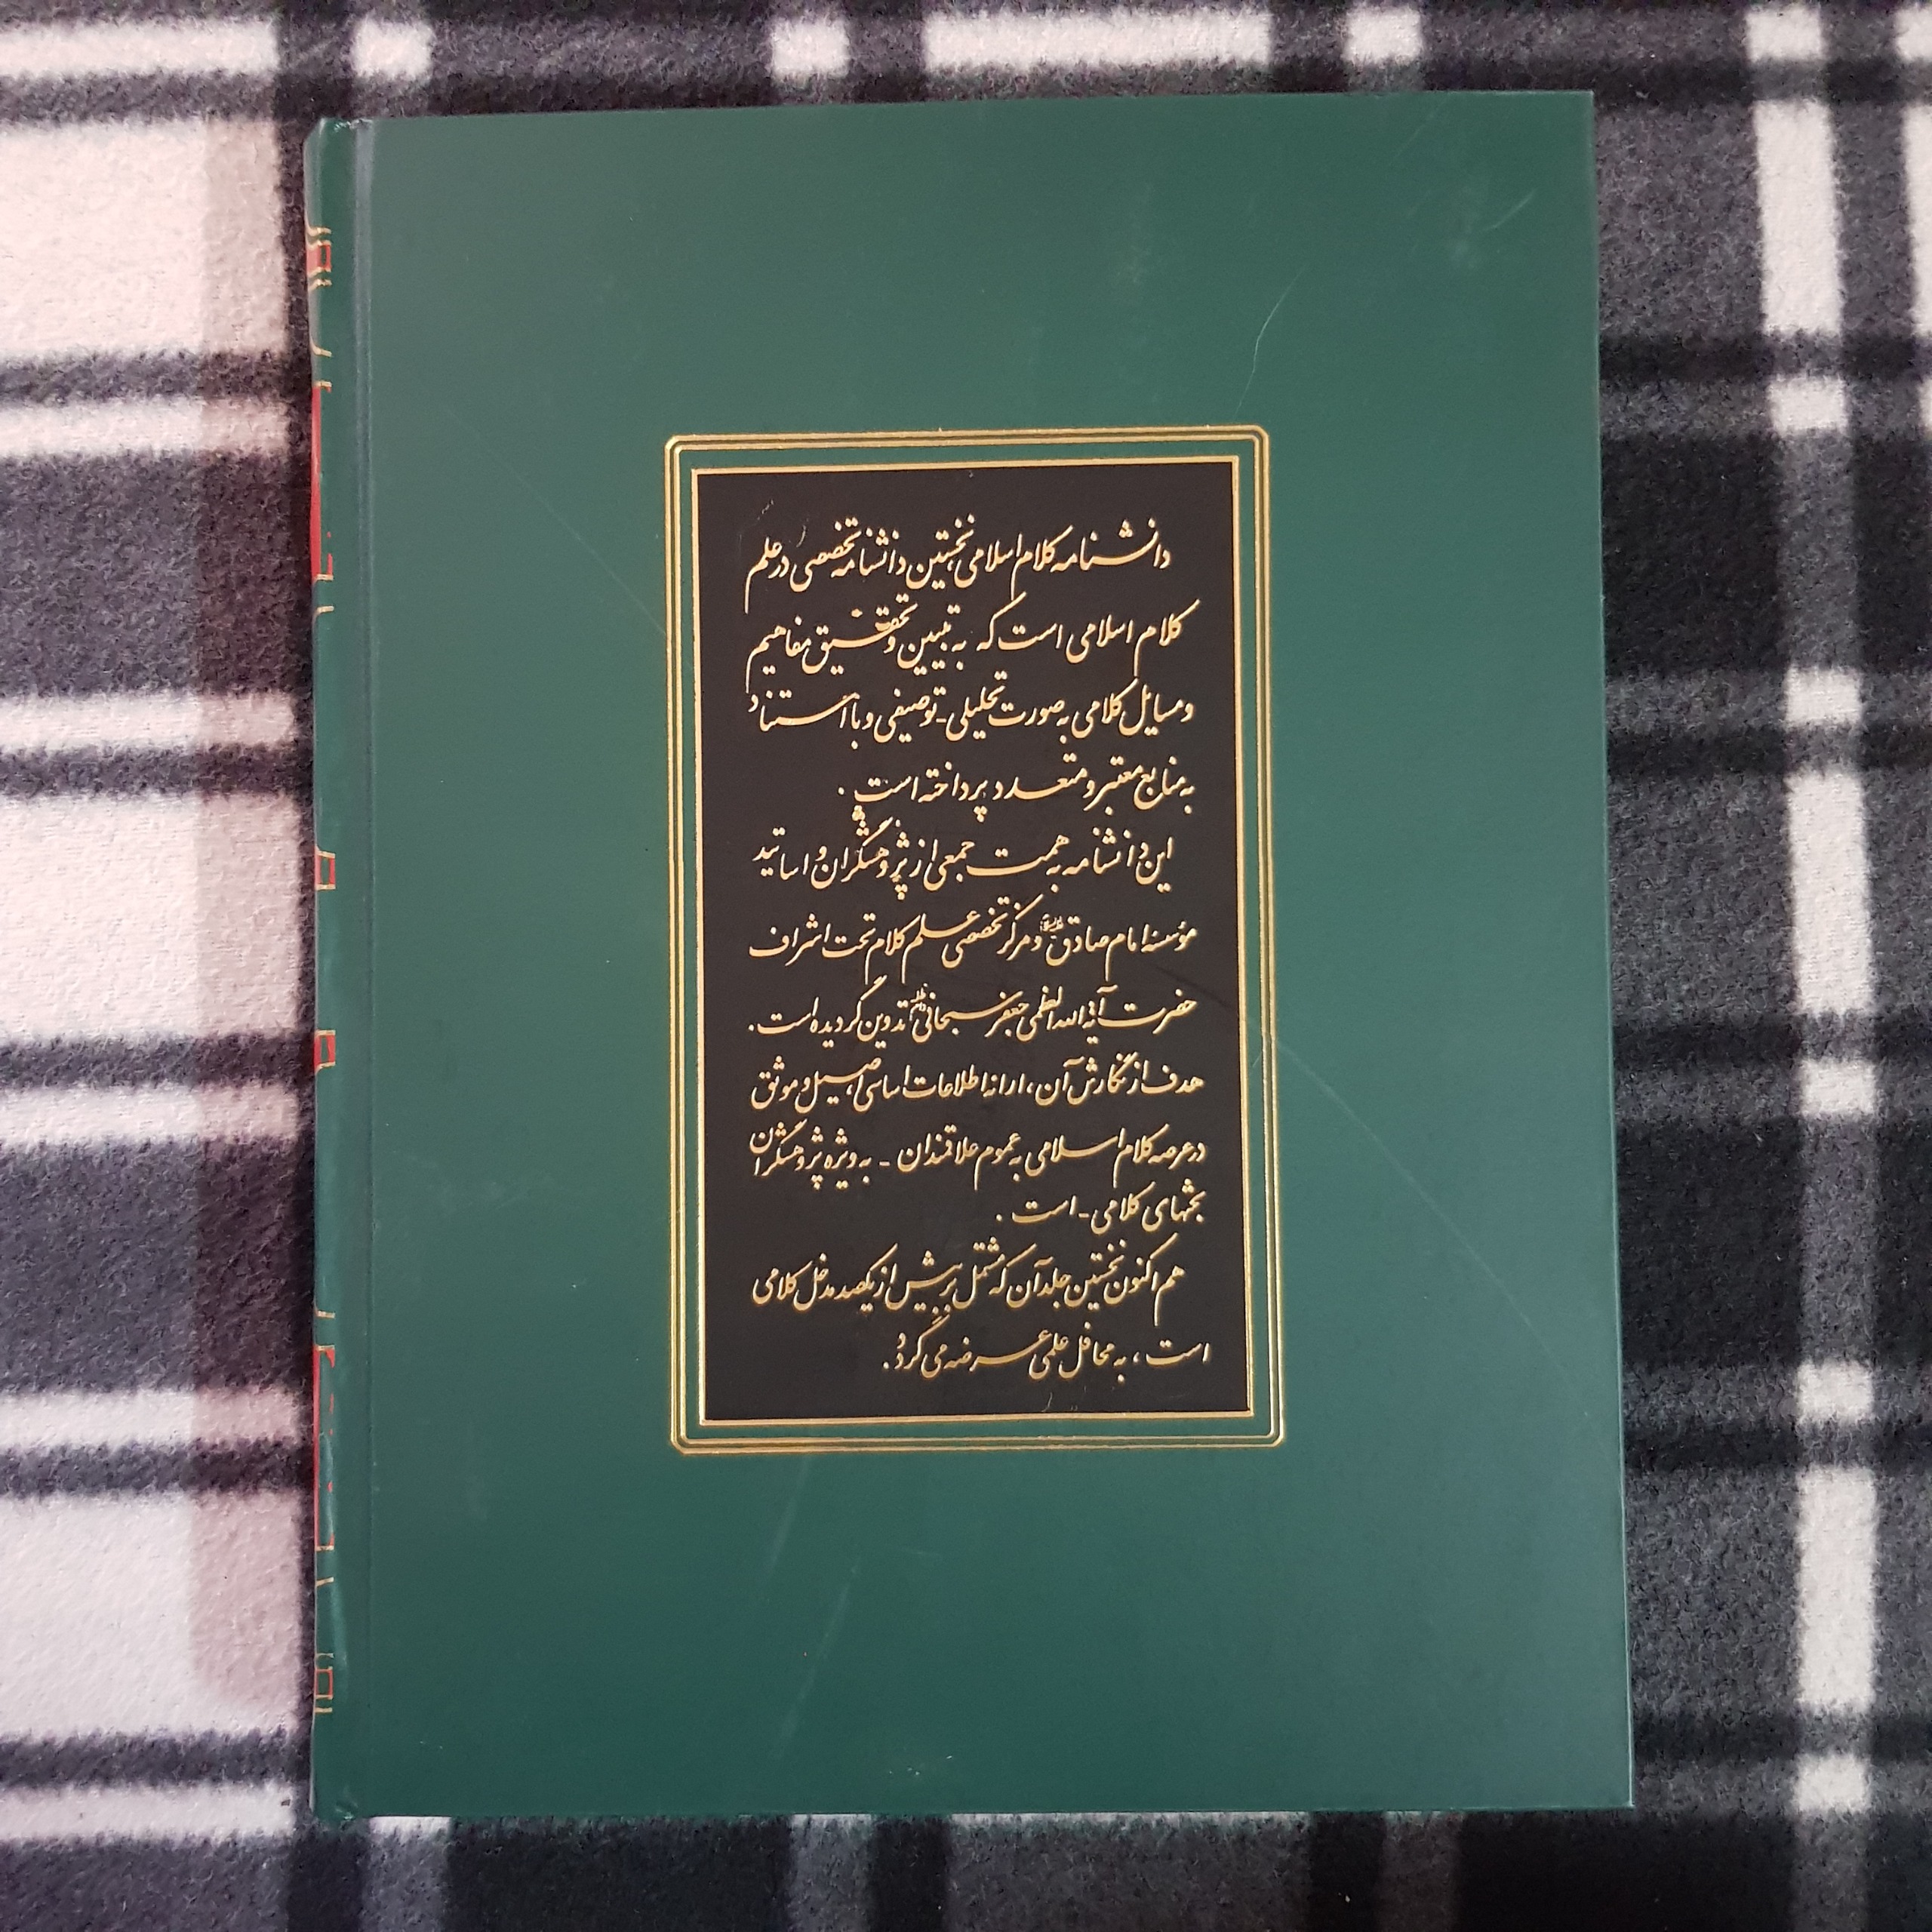 دانشنامه کلام اسلامی نخستین دانشنامه تخصصی در علم
کلام اسلامی است که به تبیین و تحقیق مفاهیم
و مسایل کلامی به صورت تحلیلی - توصیفی و با استناد
به منابع معتبر و متعدد پرداخته است .
این دانشنامه به همت جمعی از پژوهشگران و اساتید
مؤسسه امام صادق و مرکز تخصصی علم کلام تحت اشراف
حضرت آیة الله العظمی جعفر سبحانی تدوین گردیده است .
هدف از نگارش آن، ارائه اطلاعات اساسی، اصیل و موثق
در عرصه کلام اسلامی به عموم علاقمندان - به ویژه پژوهشگران
بحثهای کلامی - است .
هم اکنون نخستین جلد آن که مشتمل بر بیش از یکصد مدخل کلامی
است ، به محافل علمی عرضه می گردد .